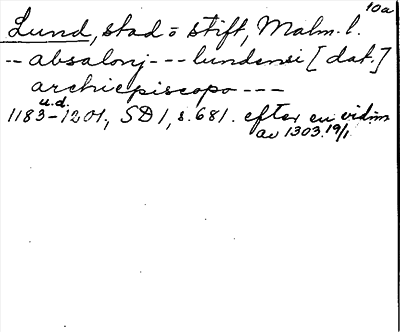 10a
Lund, stad o stift, Malm. l.
-- absalonj --- lundensi [dat.]
archiepiscopo ---
u.d.
1183-1201, SD 1, s. 681. efter en vidim
av 1303 19/1